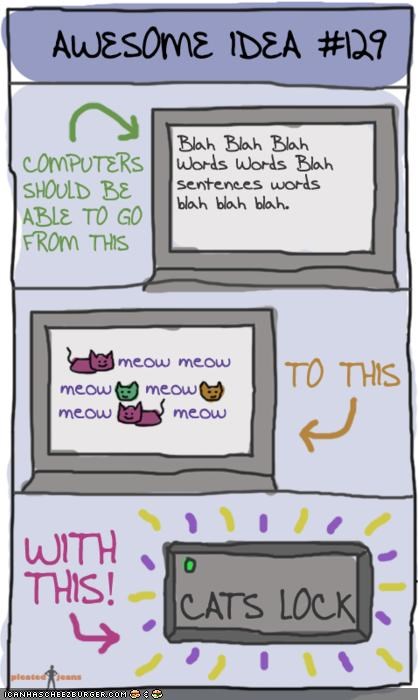 AWESOME IDEA #129
COMPUTERS
SHOULD BE
ABLE TO GO
FROM THIS
Blah Blah Blah
Words Words Blah
sentences words
blah blah blah.
meow meow
meow meow
meow meow
TO THIS
WITH
THIS!
CATS LOCK
pleated jeans
ICANHASCHEEZBURGER.COM